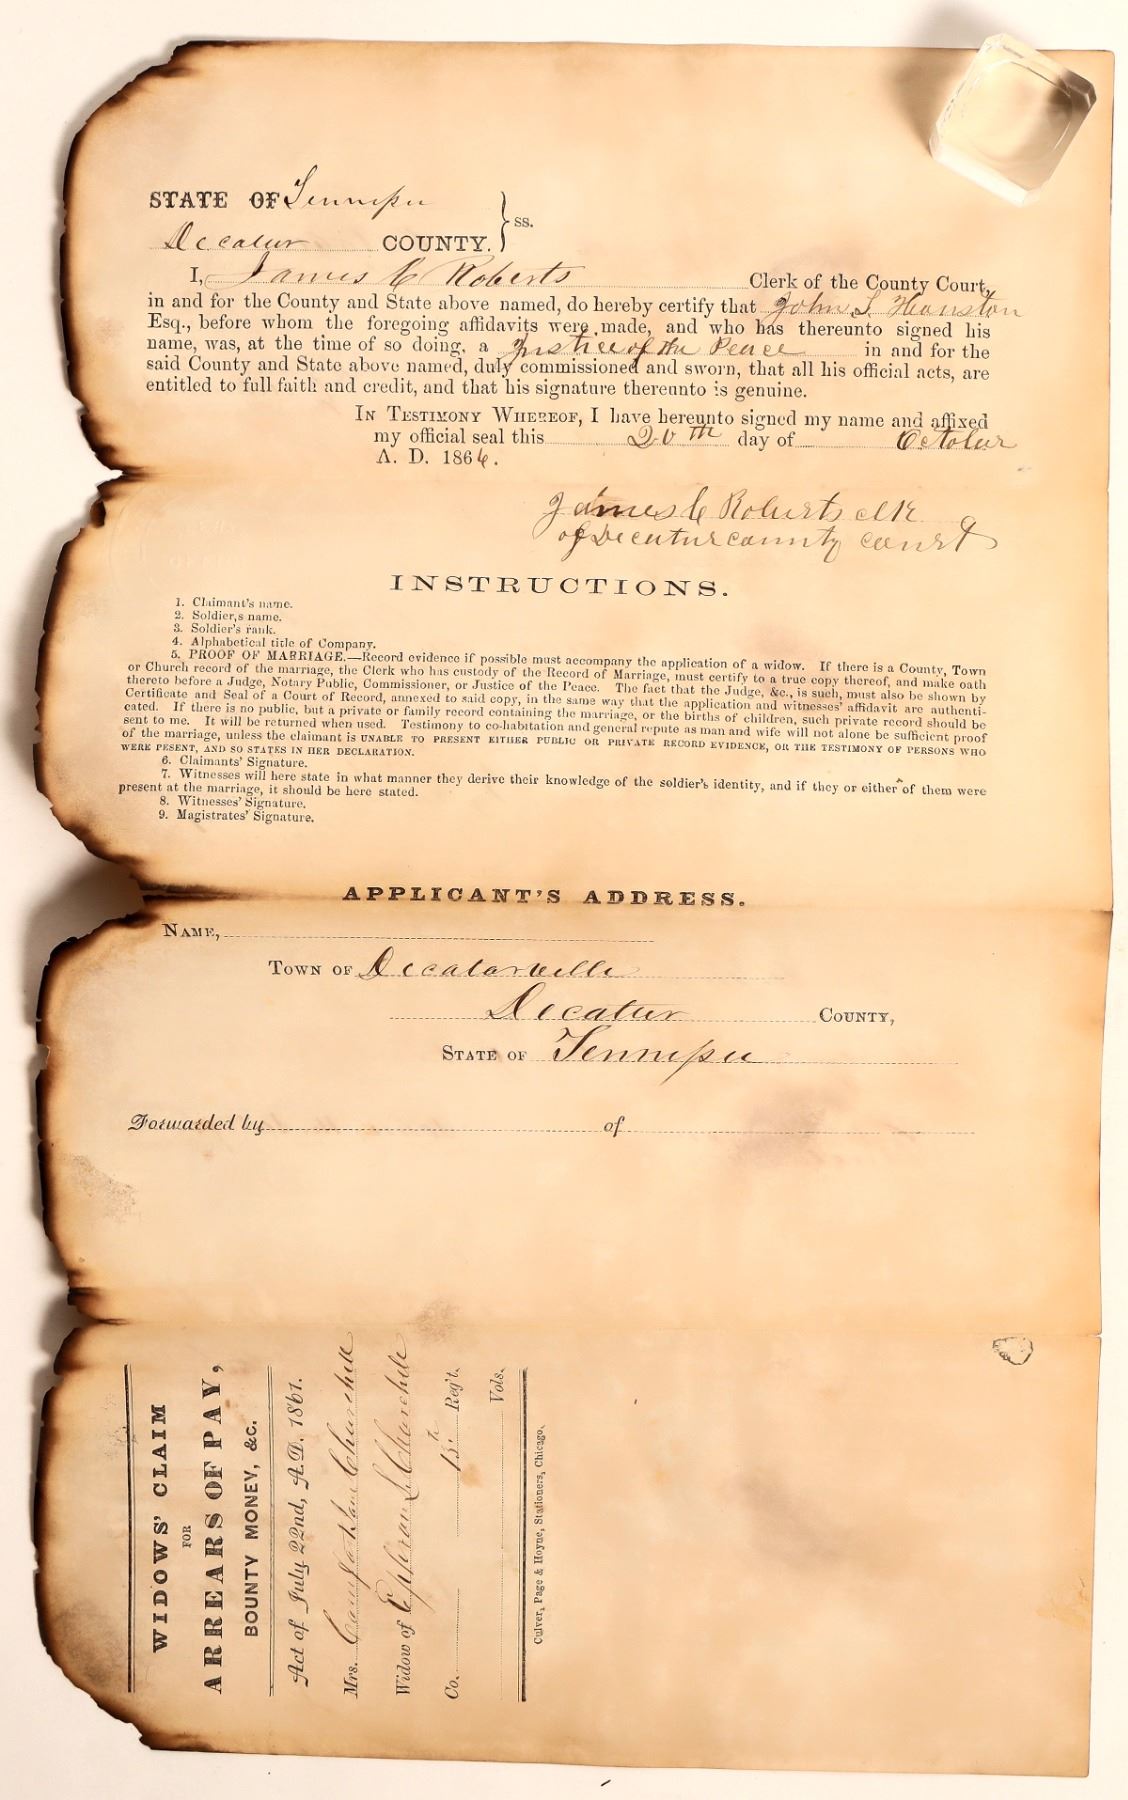 STATE OF Tennessee
Decatur COUNTY. } ss.
I, James C Roberts Clerk of the County Court,
in and for the County and State above named, do hereby certify that John S Houston
Esq., before whom the foregoing affidavits were made, and who has thereunto signed his
name, was, at the time of so doing, a Justice of the Peace in and for the
said County and State above named, duly commissioned and sworn, that all his official acts, are
entitled to full faith and credit, and that his signature thereunto is genuine.
IN TESTIMONY WHEREOF, I have hereunto signed my name and affixed
my official seal this 20th day of October
A. D. 1866.
James C Roberts clk
of Decatur county court
INSTRUCTIONS.
1. Claimant's name.
2. Soldier,s name.
3. Soldier's rank.
4. Alphabetical title of Company.
5. PROOF OF MARRIAGE.—Record evidence if possible must accompany the application of a widow. If there is a County, Town
or Church record of the marriage, the Clerk who has custody of the Record of Marriage, must certify to a true copy thereof, and make oath
thereto before a Judge, Notary Public, Commissioner, or Justice of the Peace. The fact that the Judge, &c., is such, must also be shown by
Certificate and Seal of a Court of Record, annexed to said copy, in the same way that the application and witnesses' affidavit are authenti-
cated. If there is no public, but a private or family record containing the marriage, or the births of children, such private record should be
sent to me. It will be returned when used. Testimony to co-habitation and general repute as man and wife will not alone be sufficient proof
of the marriage, unless the claimant is UNABLE TO PRESENT EITHER PUBLIC OR PRIVATE RECORD EVIDENCE, OR THE TESTIMONY OF PERSONS WHO
WERE PESENT, AND SO STATES IN HER DECLARATION.
6. Claimants' Signature.
7. Witnesses will here state in what manner they derive their knowledge of the soldier's identity, and if they or either of them were
present at the marriage, it should be here stated.
8. Witnesses' Signature.
9. Magistrates' Signature.
APPLICANT'S ADDRESS.
NAME,
TOWN OF Decatarville
Decatur COUNTY,
STATE OF Tennessee
Forwarded by of
WIDOWS' CLAIM
FOR
ARREARS OF PAY,
BOUNTY MONEY, &c.
Act of July 22nd, A.D. 1861.
Mrs. Churchill
Widow of Ephram L Churchill
Co. 13th Reg't.
Vols.
Culver, Page & Hoyne, Stationers, Chicago.